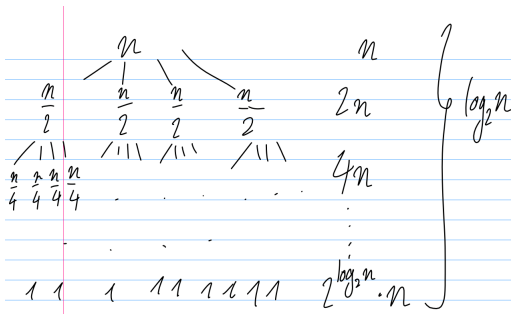 n n
n/2 n/2 n/2 n/2 2n log₂n
n/4 n/4 n/4 n/4 . . . . . 4n
. . . . ⋮
1 1 1 1 1 1 1 1 1 2^(log₂n) · n